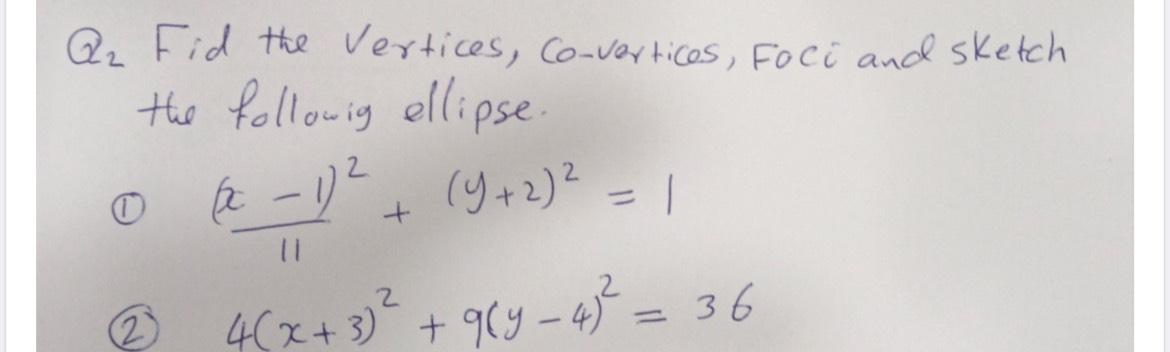 Q2 Fid the Vertices, Co-vertices, Foci and sketch
the followig ellipse.
① (x - 1)² / 11 + (y+2)² = 1
② 4(x+3)² + 9(y-4)² = 36